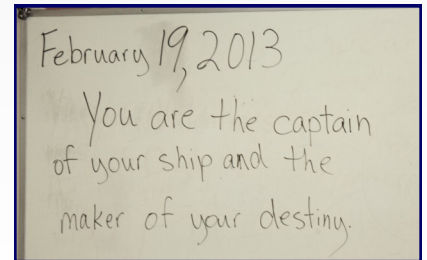 February 19, 2013
You are the captain
of your ship and the
maker of your destiny.